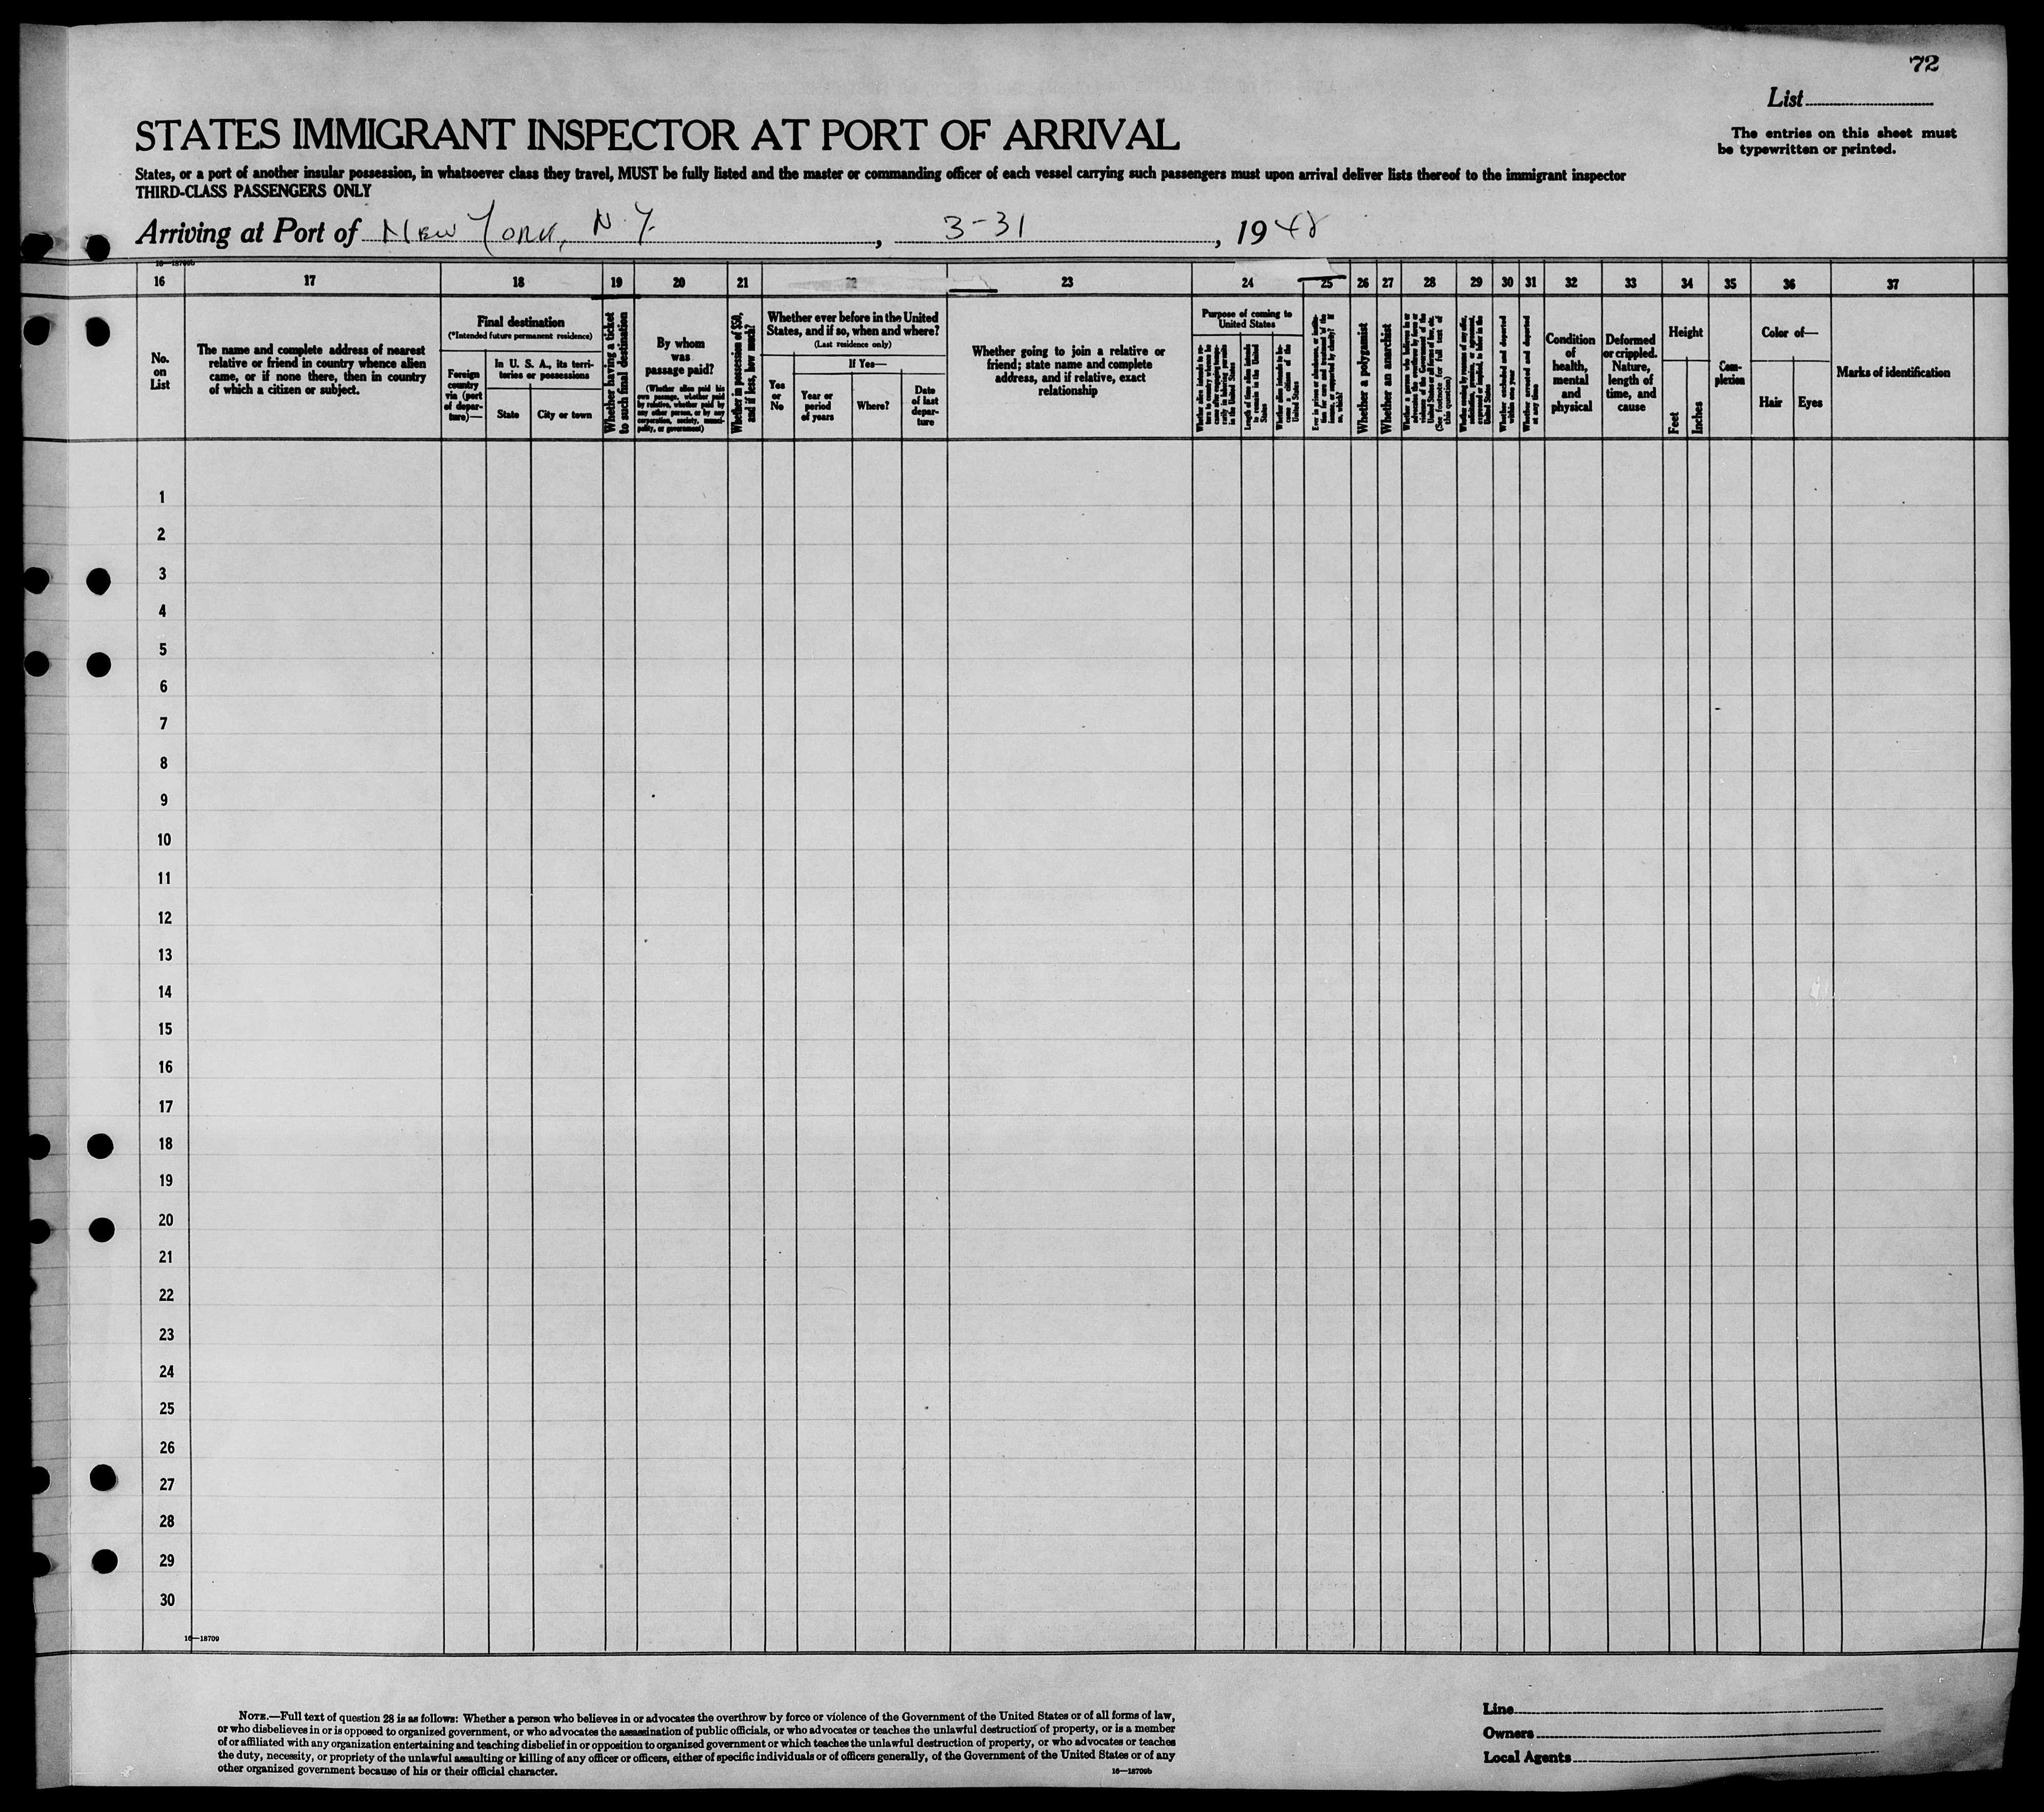 72
List
STATES IMMIGRANT INSPECTOR AT PORT OF ARRIVAL
The entries on this sheet must
be typewritten or printed.
States, or a port of another insular possession, in whatsoever class they travel, MUST be fully listed and the master or commanding officer of each vessel carrying such passengers must upon arrival deliver lists thereof to the immigrant inspector
THIRD-CLASS PASSENGERS ONLY
Arriving at Port of New York, N.Y. , 3-31 , 1948
16—18709b
16 17 18 19 20 21 22 23 24 25 26 27 28 29 30 31 32 33 34 35 36 37
No.
on
List
The name and complete address of nearest
relative or friend in country whence alien
came, or if none there, then in country
of which a citizen or subject.
Final destination
(*Intended future permanent residence)
Foreign
country
via (port
of depar-
ture)—
In U. S. A., its terri-
tories or possessions
State
City or town
Whether having a ticket
to such final destination
By whom
was
passage paid?
(Whether alien paid his
own passage, whether paid
by relative, whether paid by
any other person, or by any
corporation, society, munici-
pality, or government)
Whether in possession of $50,
and if less, how much?
Whether ever before in the United
States, and if so, when and where?
(Last residence only)
Yes
or
No
If Yes—
Year or
period
of years
Where?
Date
of last
depar-
ture
Whether going to join a relative or
friend; state name and complete
address, and if relative, exact
relationship
Purpose of coming to
United States
Length of time alien intends
to remain in the United
States
Whether alien intends to be-
come a citizen of the
United States
Whether a polygamist
Whether an anarchist
(See footnote for full text of
this question)
Whether excluded and deported
within one year
Whether arrested and deported
at any time
Condition
of
health,
mental
and
physical
Deformed
or crippled.
Nature,
length of
time, and
cause
Height
Feet
Inches
Com-
plexion
Color of—
Hair
Eyes
Marks of identification
1
2
3
4
5
6
7
8
9
10
11
12
13
14
15
16
17
18
19
20
21
22
23
24
25
26
27
28
29
30
16—18709
NOTE.—Full text of question 28 is as follows: Whether a person who believes in or advocates the overthrow by force or violence of the Government of the United States or of all forms of law,
or who disbelieves in or is opposed to organized government, or who advocates the assassination of public officials, or who advocates or teaches the unlawful destruction of property, or is a member
of or affiliated with any organization entertaining and teaching disbelief in or opposition to organized government or which teaches the unlawful destruction of property, or who advocates or teaches
the duty, necessity, or propriety of the unlawful assaulting or killing of any officer or officers, either of specific individuals or of officers generally, of the Government of the United States or of any
other organized government because of his or their official character.
16—18709b
Line
Owners
Local Agents